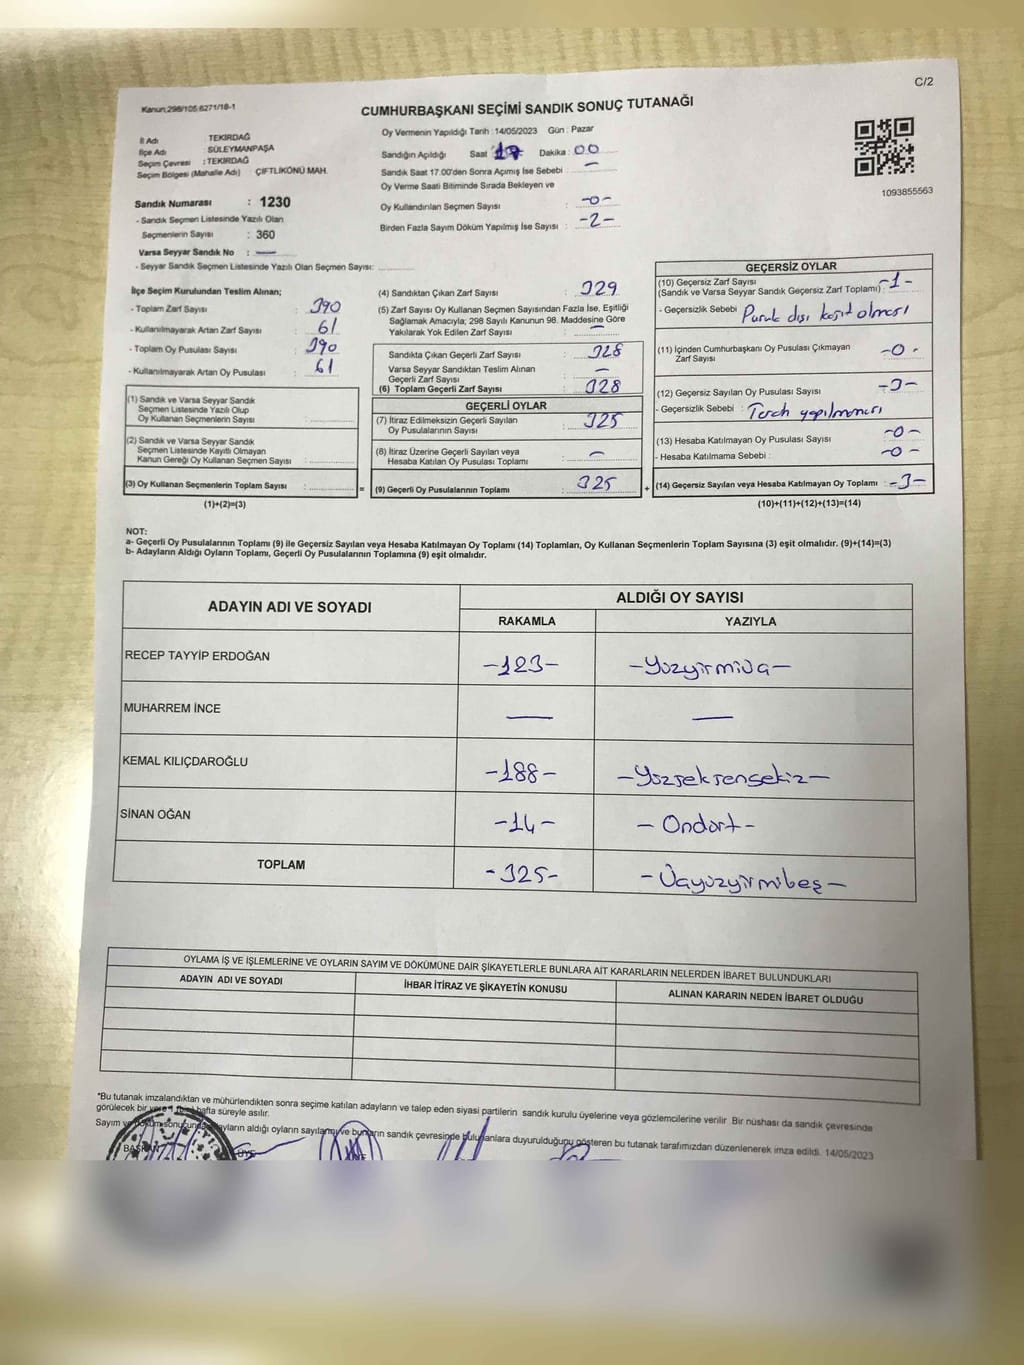 C/2
Kanun:298/105:6271/18-1
CUMHURBAŞKANI SEÇİMİ SANDIK SONUÇ TUTANAĞI
İl Adı TEKİRDAĞ
İlçe Adı : SÜLEYMANPAŞA
Seçim Çevresi : TEKİRDAĞ
Seçim Bölgesi (Mahalle Adı) ÇİFTLİKÖNÜ MAH.
Oy Vermenin Yapıldığı Tarih : 14/05/2023 Gün : Pazar
Sandığın Açıldığı Saat : 17 Dakika : 00
Sandık Saat 17.00'den Sonra Açımış İse Sebebi : —
Oy Verme Saati Bitiminde Sırada Bekleyen ve
Oy Kullandırılan Seçmen Sayısı : -0-
Birden Fazla Sayım Döküm Yapılmış İse Sayısı : -2-
1093855563
Sandık Numarası : 1230
- Sandık Seçmen Listesinde Yazılı Olan
Seçmenlerin Sayısı : 360
Varsa Seyyar Sandık No : —
- Seyyar Sandık Seçmen Listesinde Yazılı Olan Seçmen Sayısı:
İlçe Seçim Kurulundan Teslim Alınan;
- Toplam Zarf Sayısı : 390
- Kullanılmayarak Artan Zarf Sayısı : 61
- Toplam Oy Pusulası Sayısı : 390
- Kullanılmayarak Artan Oy Pusulası : 61
(1) Sandık ve Varsa Seyyar Sandık
Seçmen Listesinde Yazılı Olup
Oy Kullanan Seçmenlerin Sayısı :
(2) Sandık ve Varsa Seyyar Sandık
Seçmen Listesinde Kayıtlı Olmayan
Kanun Gereği Oy Kullanan Seçmen Sayısı :
(3) Oy Kullanan Seçmenlerin Toplam Sayısı :
(1)+(2)=(3)
(4) Sandıktan Çıkan Zarf Sayısı : 329
(5) Zarf Sayısı Oy Kullanan Seçmen Sayısından Fazla İse, Eşitliği
Sağlamak Amacıyla; 298 Sayılı Kanunun 98. Maddesine Göre
Yakılarak Yok Edilen Zarf Sayısı : —
Sandıkta Çıkan Geçerli Zarf Sayısı : 328
Varsa Seyyar Sandıktan Teslim Alınan
Geçerli Zarf Sayısı : —
(6) Toplam Geçerli Zarf Sayısı : 328
GEÇERLİ OYLAR
(7) İtiraz Edilmeksizin Geçerli Sayılan
Oy Pusulalarının Sayısı : 325
(8) İtiraz Üzerine Geçerli Sayılan veya
Hesaba Katılan Oy Pusulası Toplamı : —
= (9) Geçerli Oy Pusulalarının Toplamı : 325
GEÇERSİZ OYLAR
(10) Geçersiz Zarf Sayısı
(Sandık ve Varsa Seyyar Sandık Geçersiz Zarf Toplamı) : -1-
- Geçersizlik Sebebi : Pusula dışı kağıt olması
(11) İçinden Cumhurbaşkanı Oy Pusulası Çıkmayan
Zarf Sayısı : -0-
(12) Geçersiz Sayılan Oy Pusulası Sayısı : -3-
- Geçersizlik Sebebi : Tercih yapılmaması
(13) Hesaba Katılmayan Oy Pusulası Sayısı : -0-
- Hesaba Katılmama Sebebi : -0-
+ (14) Geçersiz Sayılan veya Hesaba Katılmayan Oy Toplamı : -3-
(10)+(11)+(12)+(13)=(14)
NOT:
a- Geçerli Oy Pusulalarının Toplamı (9) ile Geçersiz Sayılan veya Hesaba Katılmayan Oy Toplamı (14) Toplamları, Oy Kullanan Seçmenlerin Toplam Sayısına (3) eşit olmalıdır. (9)+(14)=(3)
b- Adayların Aldığı Oyların Toplamı, Geçerli Oy Pusulalarının Toplamına (9) eşit olmalıdır.
ADAYIN ADI VE SOYADI
ALDIĞI OY SAYISI
RAKAMLA YAZIYLA
RECEP TAYYİP ERDOĞAN -123- -Yüzyirmiüç-
MUHARREM İNCE — —
KEMAL KILIÇDAROĞLU -188- -Yüzseksensekiz-
SİNAN OĞAN -14- -Ondört-
TOPLAM -325- -Üçyüzyirmibeş-
OYLAMA İŞ VE İŞLEMLERİNE VE OYLARIN SAYIM VE DÖKÜMÜNE DAİR ŞİKAYETLERLE BUNLARA AİT KARARLARIN NELERDEN İBARET BULUNDUKLARI
ADAYIN ADI VE SOYADI İHBAR İTİRAZ VE ŞİKAYETİN KONUSU ALINAN KARARIN NEDEN İBARET OLDUĞU
*Bu tutanak imzalandıktan ve mühürlendikten sonra seçime katılan adayların ve talep eden siyasi partilerin sandık kurulu üyelerine veya gözlemcilerine verilir. Bir nüshası da sandık çevresinde
görülecek bir yere hafta süreyle asılır.
Sayım ve döküm sonucunda adayların aldığı oyların sayılarını ve bunların sandık çevresinde bulunanlara duyurulduğunu gösteren bu tutanak tarafımızdan düzenlenerek imza edildi. 14/05/2023